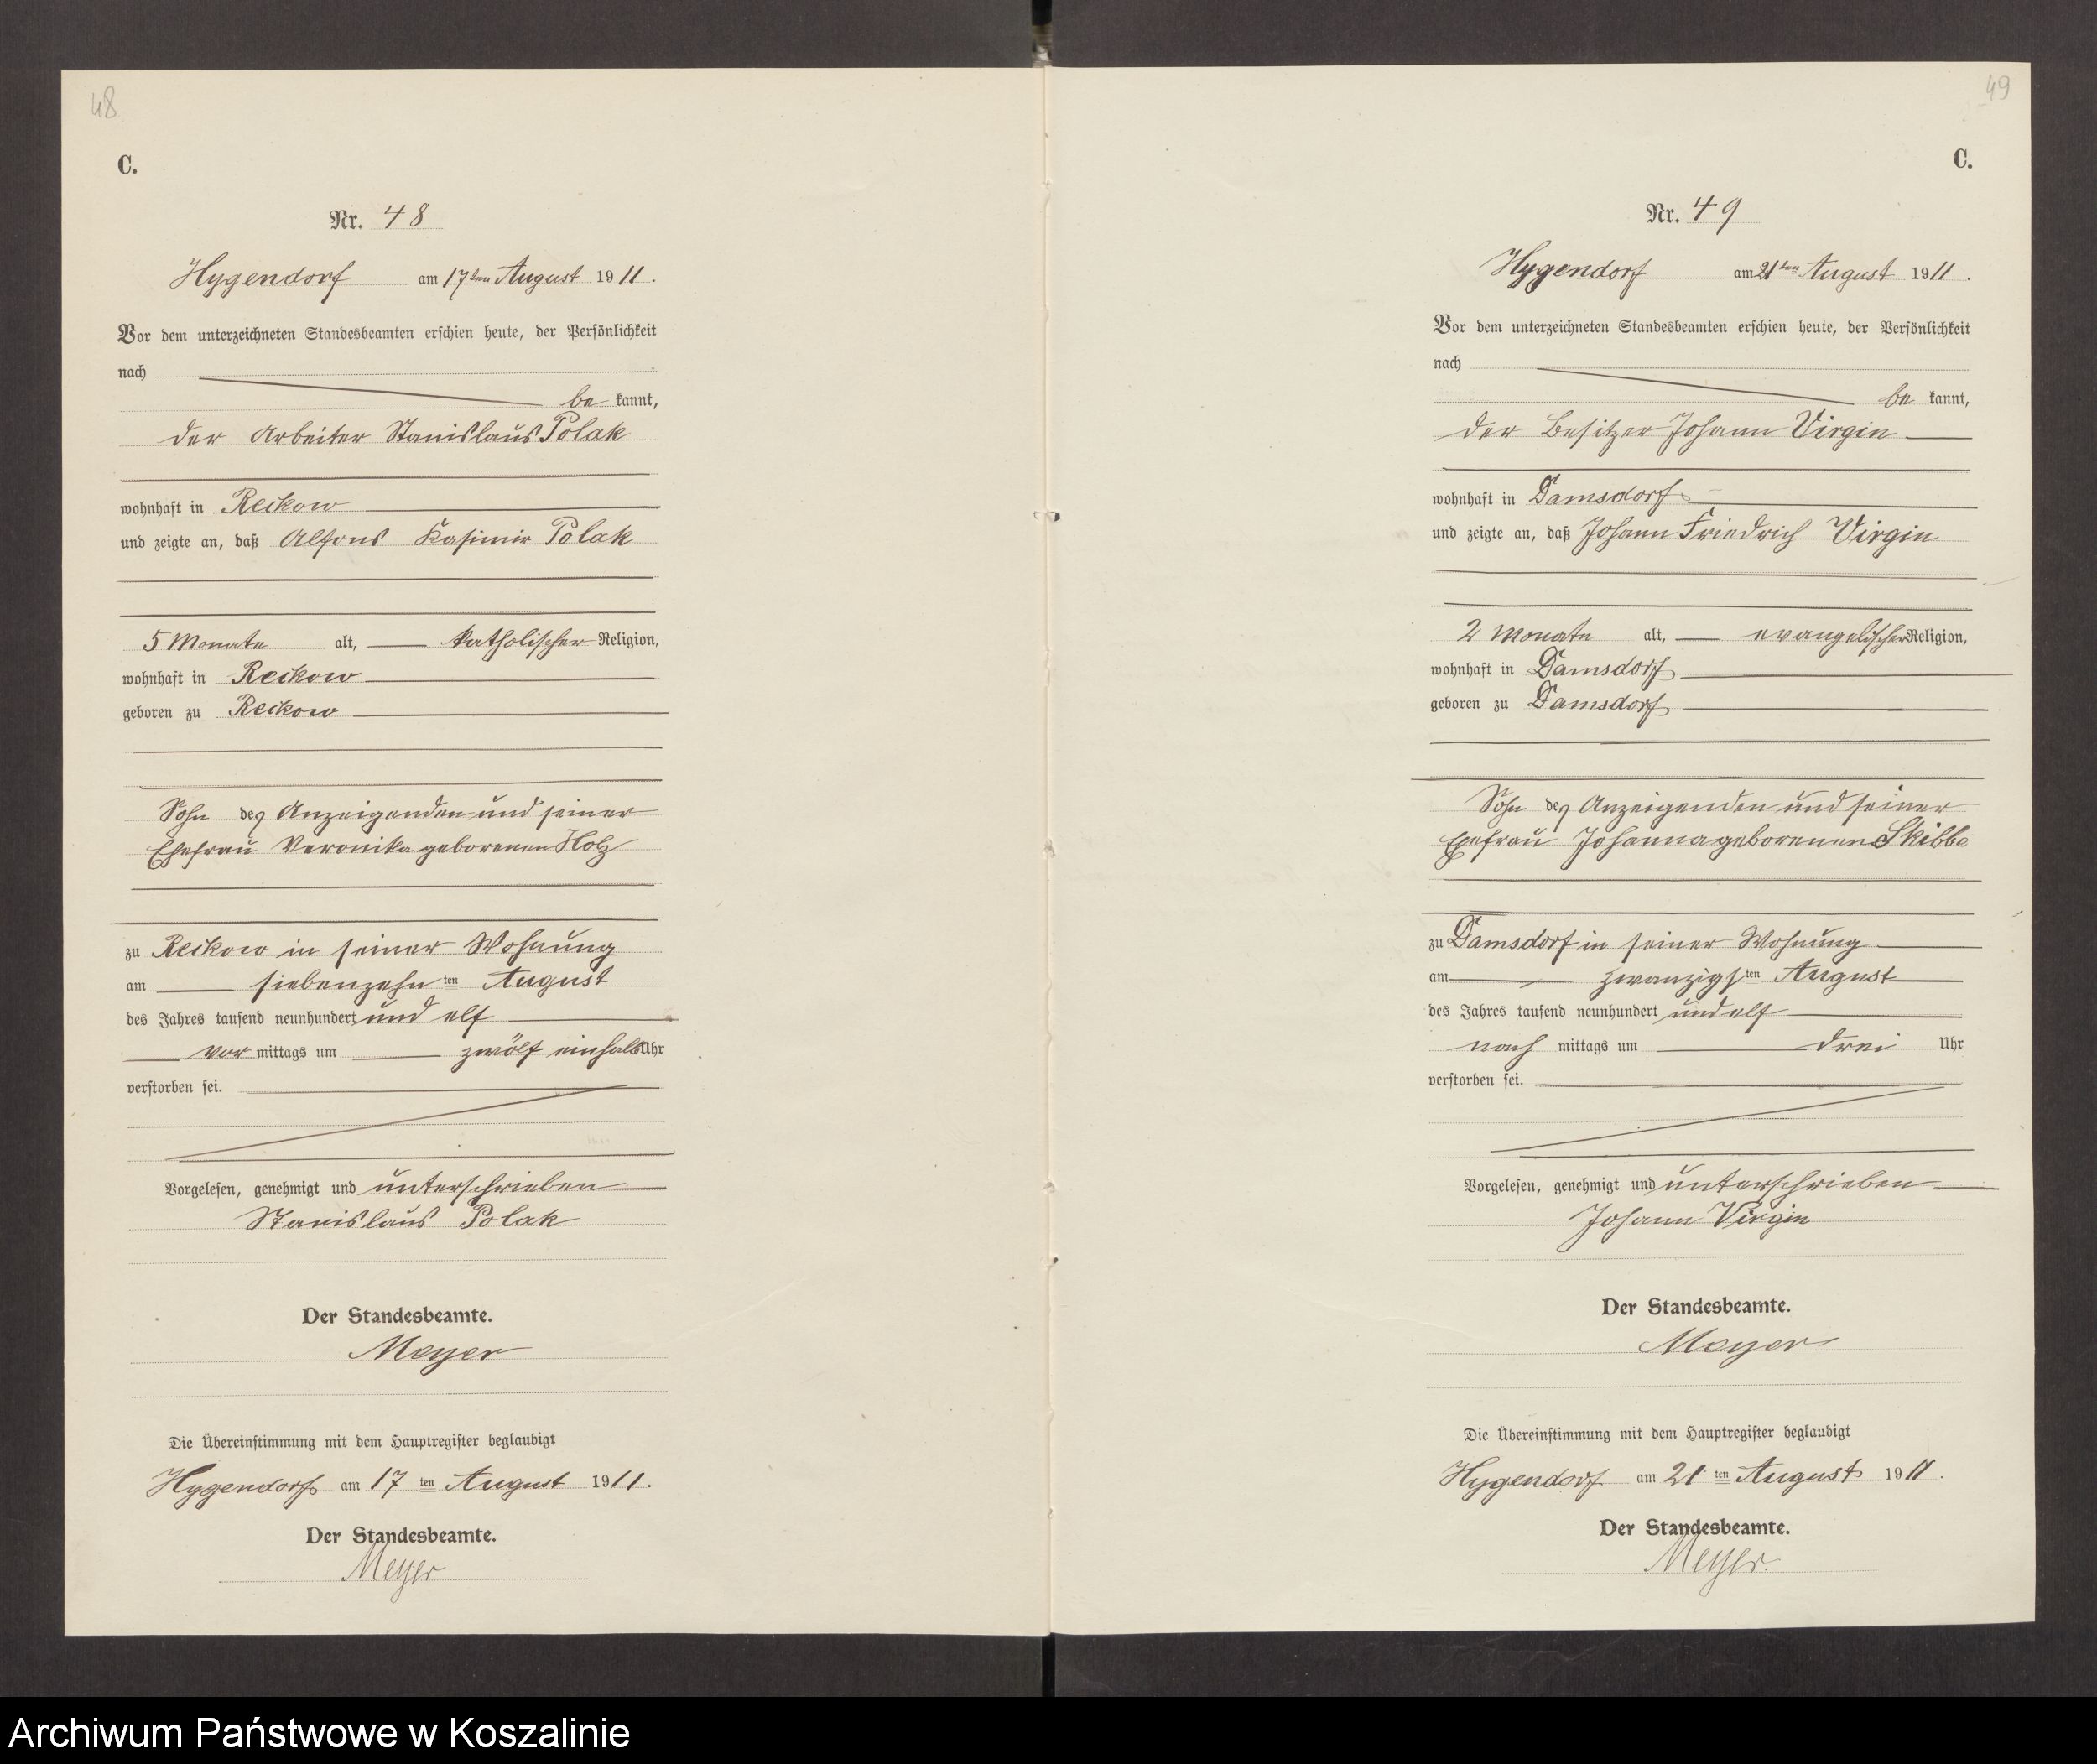 48
C.
Nr. 48
Hygendorf am 17ten August 1911.
Vor dem unterzeichneten Standesbeamten erschien heute, der Persönlichkeit
nach
be kannt,
der Arbeiter Stanislaus Polak
wohnhaft in Reckow
und zeigte an, daß Alfons Kasimir Polak
5 Monate alt, katholischer Religion,
wohnhaft in Reckow
geboren zu Reckow
Sohn des Anzeigenden und seiner
Ehefrau Veronika geborenen Holz
zu Reckow in seiner Wohnung
am siebenzehn ten August
des Jahres tausend neunhundert und elf
vor mittags um zwölf einhalb Uhr
verstorben sei.
Vorgelesen, genehmigt und unterschrieben
Stanislaus Polak
Der Standesbeamte.
Meyer
Die Übereinstimmung mit dem Hauptregister beglaubigt
Hygendorf am 17 ten August 1911.
Der Standesbeamte.
Meyer
49
C.
Nr. 49
Hygendorf am 21ten August 1911.
Vor dem unterzeichneten Standesbeamten erschien heute, der Persönlichkeit
nach
be kannt,
der Besitzer Johann Virgin
wohnhaft in Damsdorf
und zeigte an, daß Johann Friedrich Virgin
2 Monate alt, evangelischer Religion,
wohnhaft in Damsdorf
geboren zu Damsdorf
Sohn des Anzeigenden und seiner
Ehefrau Johanna geborenen Skibbe
zu Damsdorf in seiner Wohnung
am zwanzigs ten August
des Jahres tausend neunhundert und elf
nach mittags um drei Uhr
verstorben sei.
Vorgelesen, genehmigt und unterschrieben
Johann Virgin
Der Standesbeamte.
Meyer
Die Übereinstimmung mit dem Hauptregister beglaubigt
Hygendorf am 21 ten August 1911.
Der Standesbeamte.
Meyer.
Archiwum Państwowe w Koszalinie